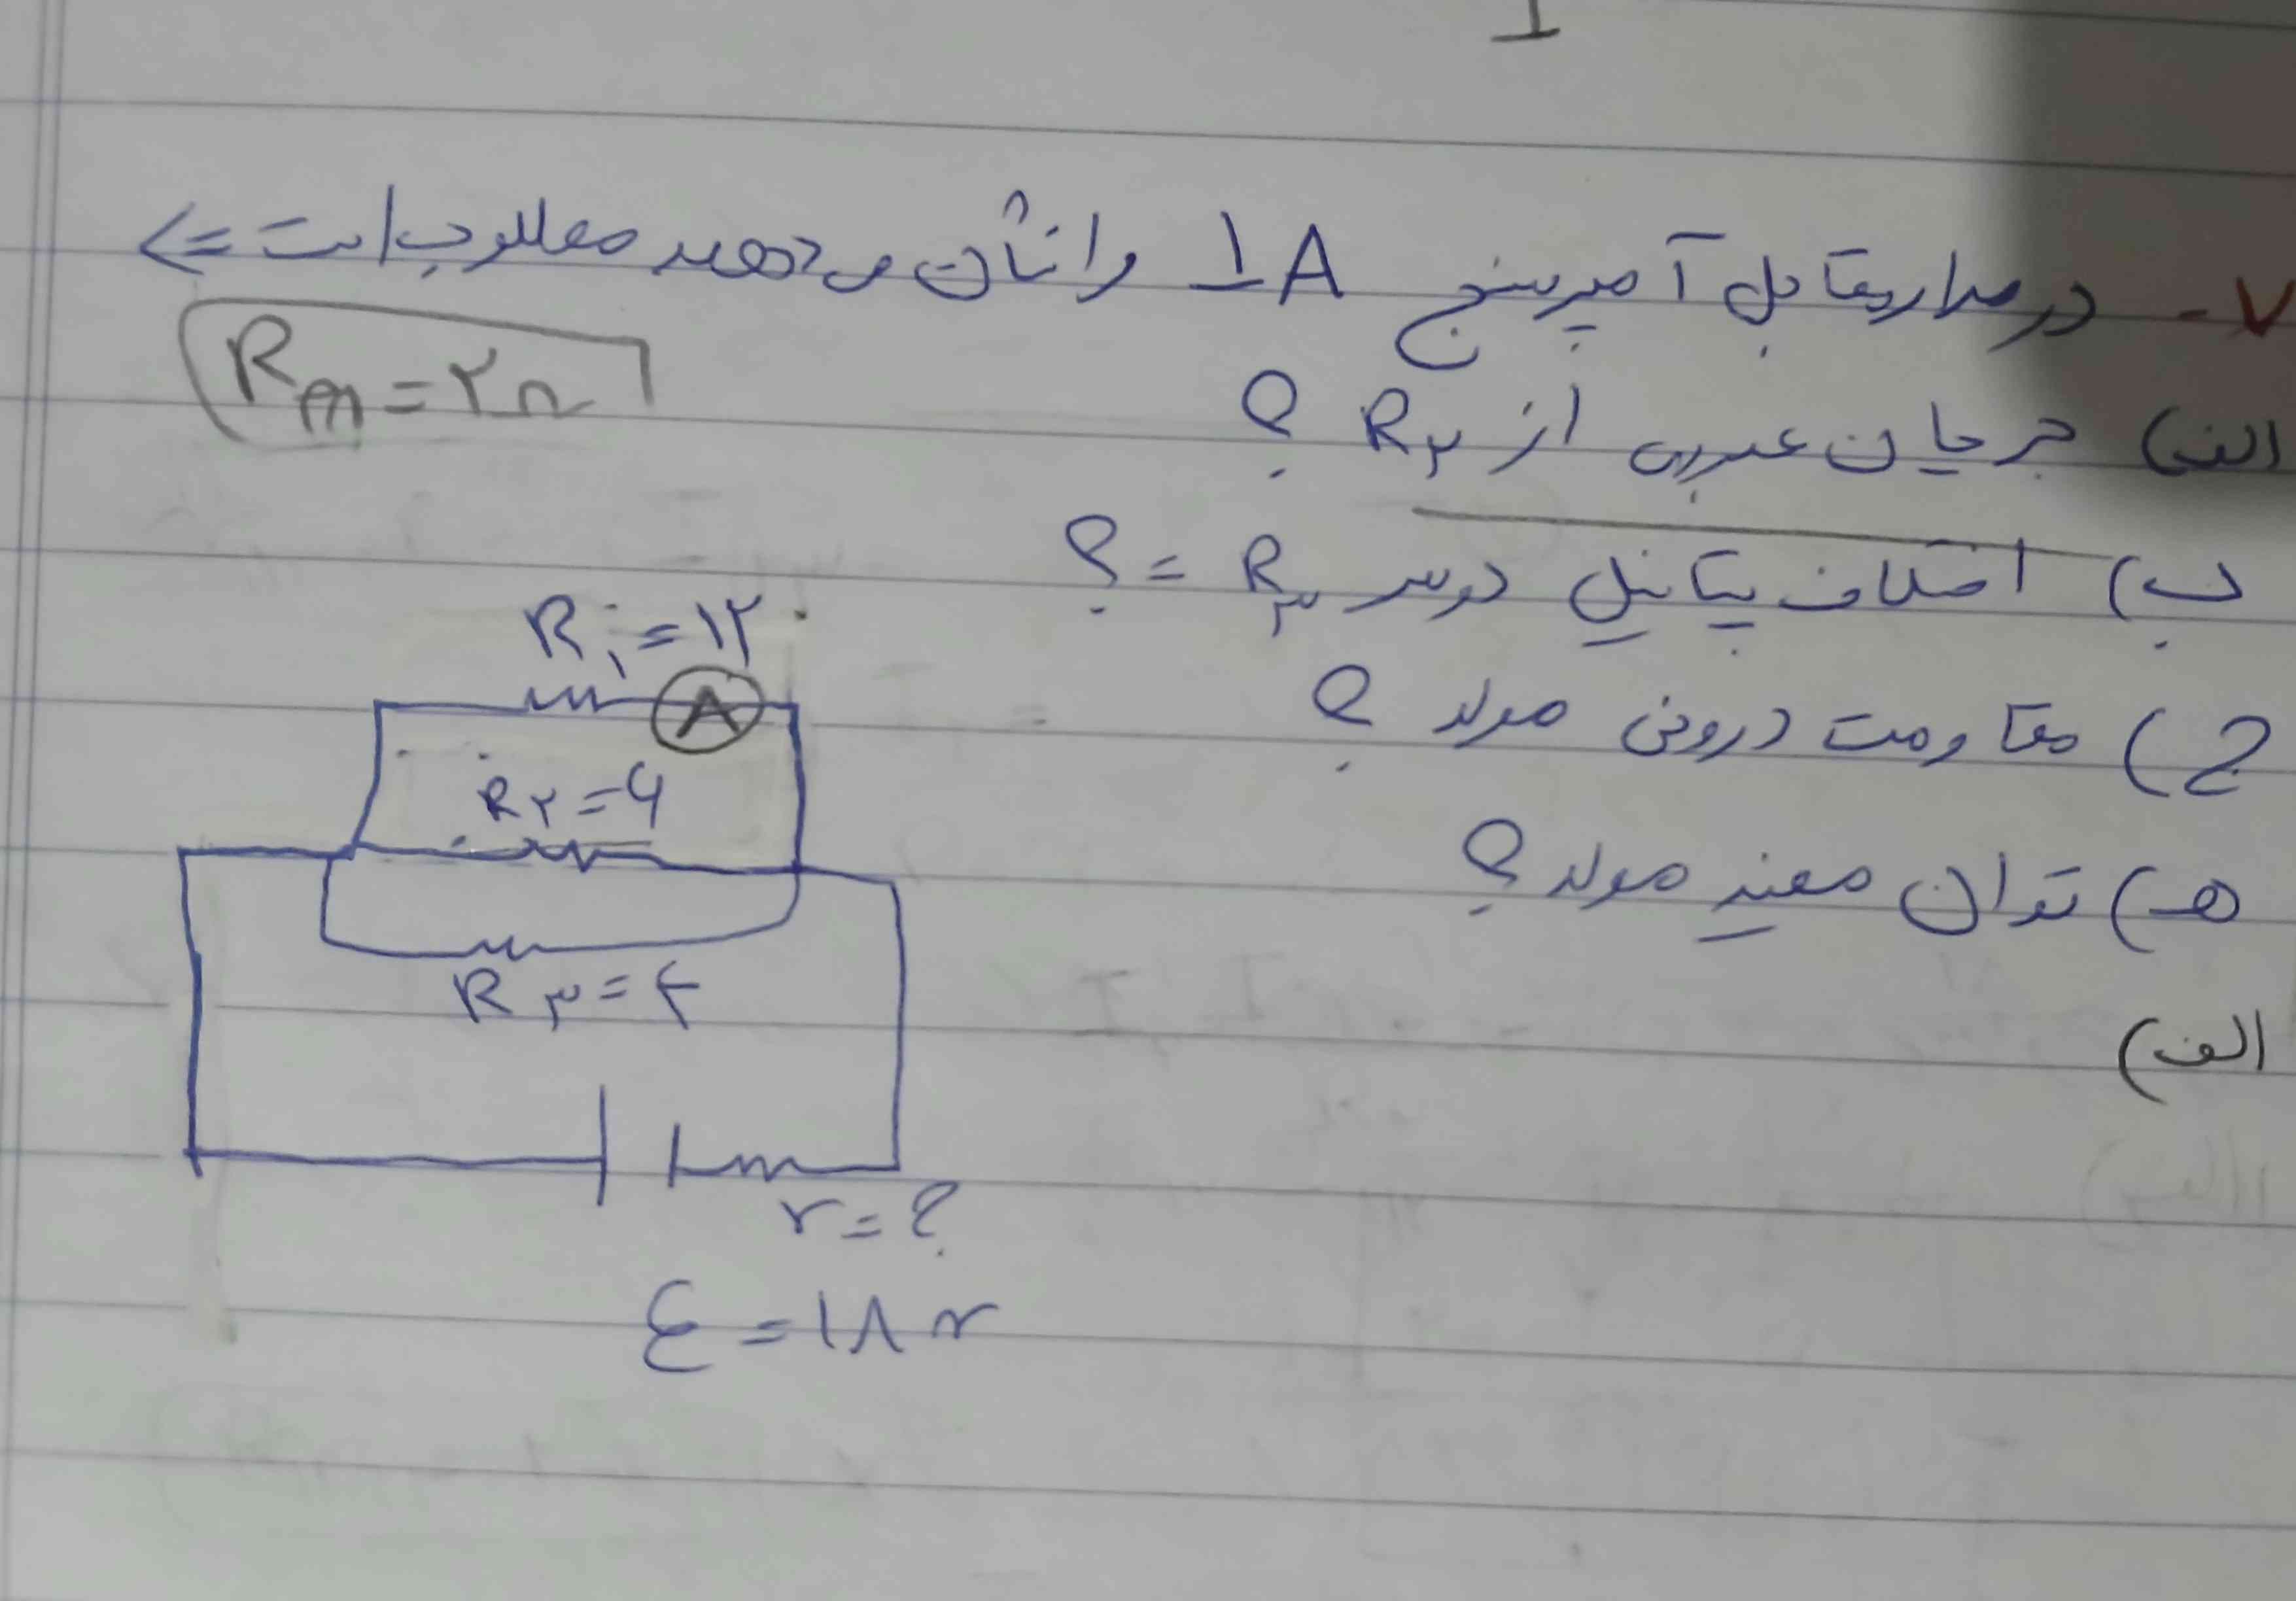 I
۷- در مدار مقابل آمپرسنج 1A را نشان می دهد مطلوب است <=
Rm = ۲Ω
الف) جریان عبوری از R۲ ؟
ب) اختلاف پتانسیل دو سر R۳ = ؟
ج) مقاومت درونی مولد ؟
هـ) توان مفید مولد ؟
الف)
R۱ = ۱۲
A
R۲ = ۶
R۳ = ۴
r = ?
ε = ۱۸ v